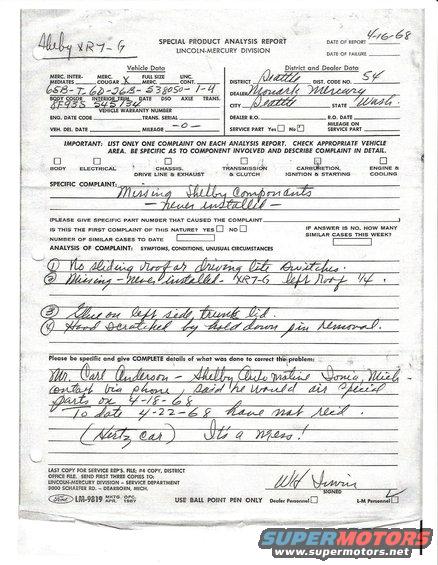 Shelby XR7-G
SPECIAL PRODUCT ANALYSIS REPORT
LINCOLN-MERCURY DIVISION
DATE OF REPORT 4-16-68
DATE OF FAILURE
Vehicle Data
District and Dealer Data
MERC. INTER-MEDIATES MERC. COUGAR X FULL SIZE MERC. LINC. CONT.
DISTRICT Seattle DIST. CODE NO. 54
65B-T-6D-26B-538050-1-4
DEALER Monark Mercury
BODY COLOR INTERIOR TRIM DATE DSO AXLE TRANS.
CITY Seattle STATE Wash.
8F93S
VEHICLE WARRANTY NUMBER
ENG. DATE CODE TRANS. SERIAL NO.
DEALER R.O. R.O. DATE
VEH. DEL. DATE MILEAGE -0-
SERVICE PART Yes No MILEAGE ON SERVICE PART
IMPORTANT: LIST ONLY ONE COMPLAINT ON EACH ANALYSIS REPORT. CHECK APPROPRIATE VEHICLE
AREA. BE SPECIFIC AS TO COMPONENT INVOLVED AND DESCRIBE COMPLAINT IN DETAIL.
BODY ELECTRICAL CHASSIS, DRIVE LINE & EXHAUST TRANSMISSION & CLUTCH CARBURETION, IGNITION & STARTING ENGINE & COOLING
SPECIFIC COMPLAINT:
Missing Shelby Components
- never installed -
(PLEASE GIVE SPECIFIC PART NUMBER THAT CAUSED THE COMPLAINT
IS THIS THE FIRST COMPLAINT OF THIS NATURE? YES NO
IF ANSWER IS NO, HOW MANY SIMILAR CASES THIS WEEK?
NUMBER OF SIMILAR CASES TO DATE
ANALYSIS OF COMPLAINT: SYMPTOMS, CONDITIONS, UNUSUAL CIRCUMSTANCES
① No sliding roof or driving lite switches.
② Missing - never installed - XR7-G left roof 1/4.
③ Glue on left side, trunk lid.
④ Hood scratched by hold down pin removal.
Please be specific and give COMPLETE details of what was done to correct the problem:
Mr. Carl Anderson - Shelby Automotive Ionia, Mich.
contact via phone, said he would air special
parts on 4-18-68
To date 4-22-68 have not rec'd.
(Hertz car) It's a mess!
LAST COPY FOR SERVICE REP'S. FILE; #4 COPY, DISTRICT
OFFICE FILE. SEND FIRST THREE COPIES TO:
LINCOLN-MERCURY DIVISION - SERVICE DEPARTMENT
3000 SCHAEFER RD. - DEARBORN, MICH.
WH Irwin
SIGNED
Ford LM-9819 MKTG. OPC. APR. 1967
USE BALL POINT PEN ONLY
Dealer Personnel L-M Personnel
SUPERMOTORS
www.supermotors.net